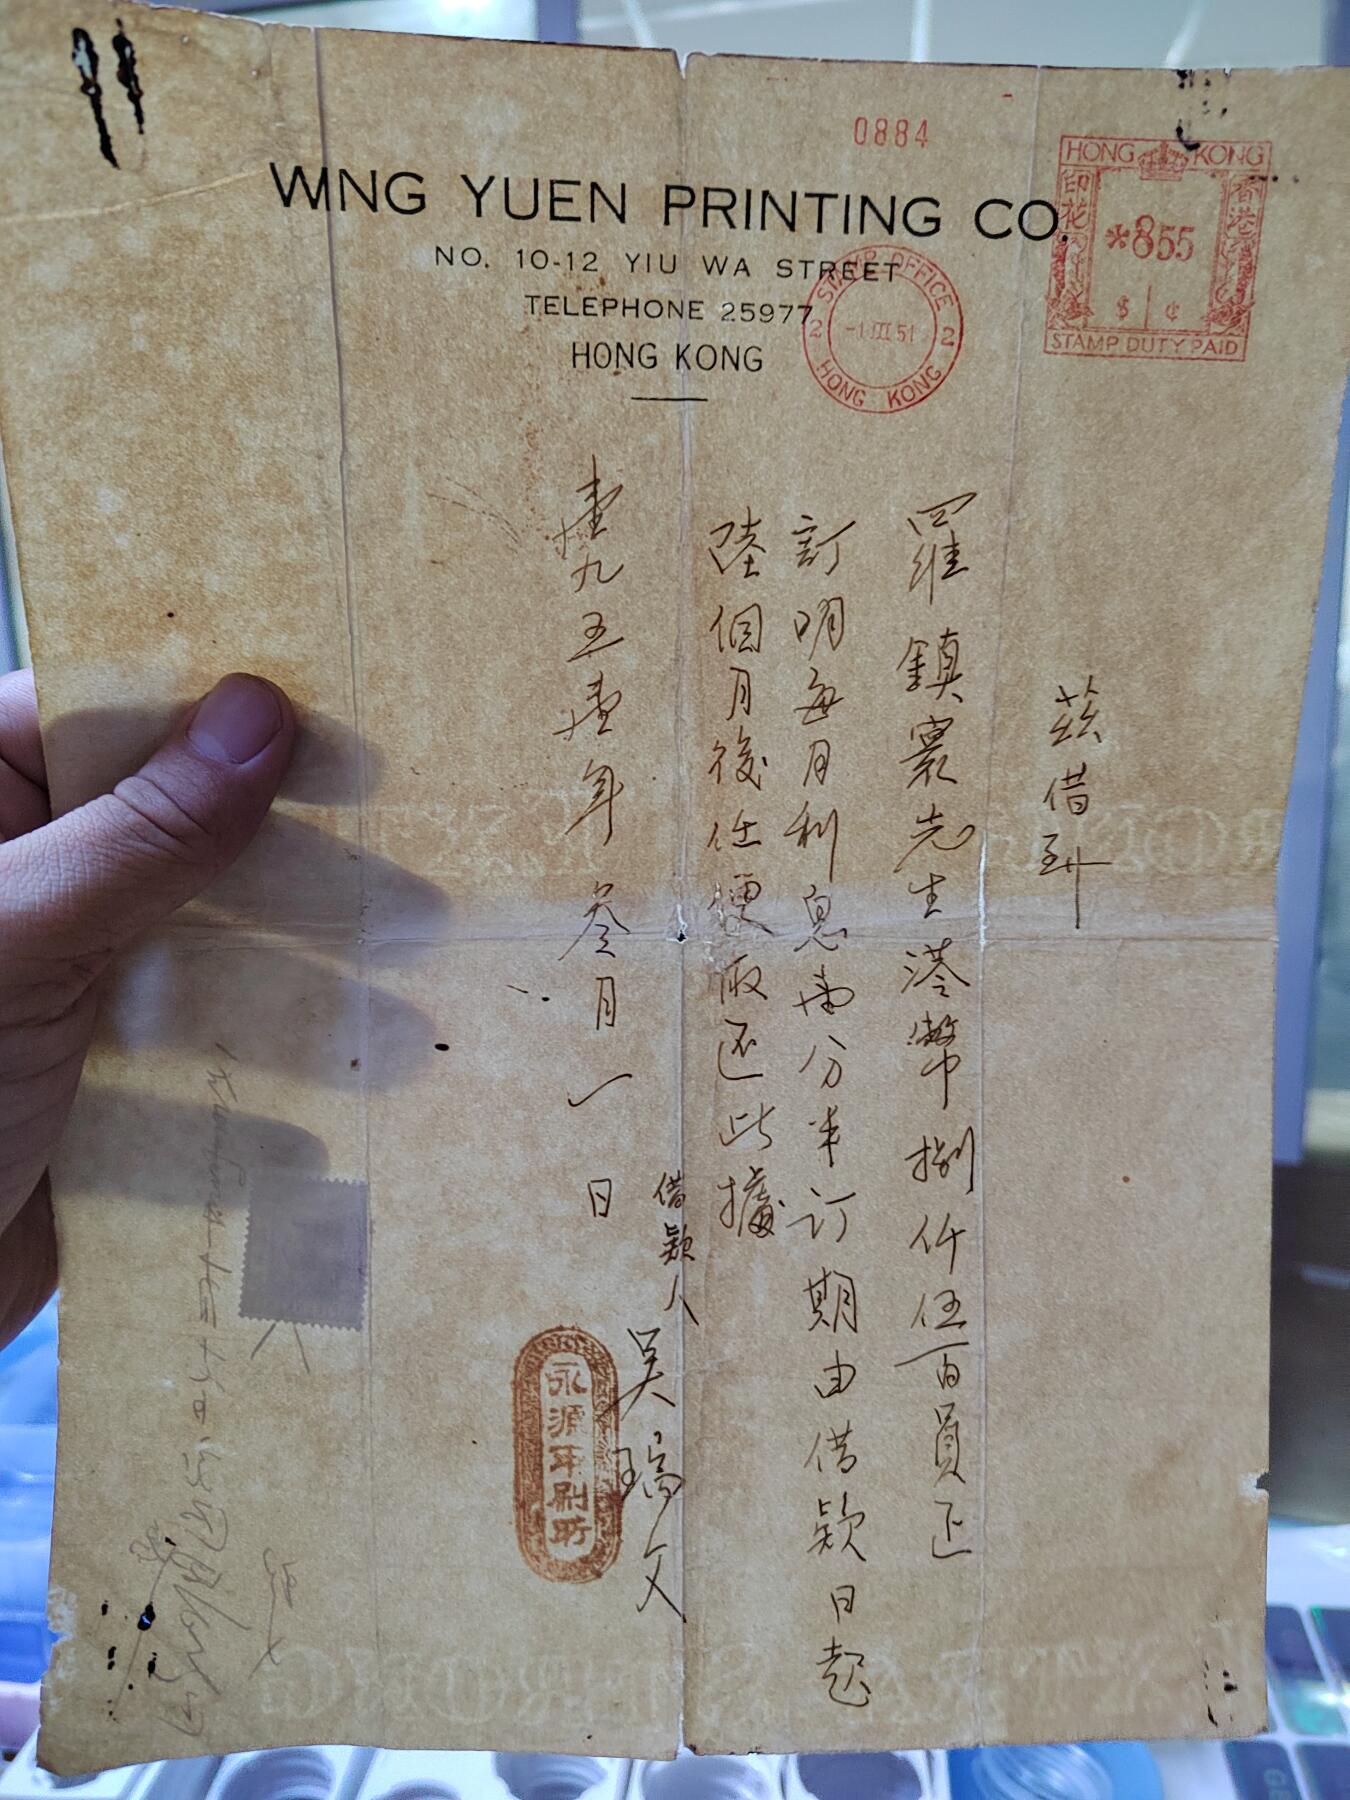 0884
HONG KONG
印花
香港
*855
$ ¢
STAMP DUTY PAID
WING YUEN PRINTING CO.
NO. 10-12 YIU WA STREET
TELEPHONE 25977
HONG KONG
STAMP OFFICE
2 -1 III 51 2
HONG KONG
茲借到
羅鎮寰先生港幣捌仟伍百員正
訂明每月利息壹分半訂期由借欵日起
陸個月後任便取還此據
借欵人
吳瑞文
永源印刷所
壹九五壹年叁月一日